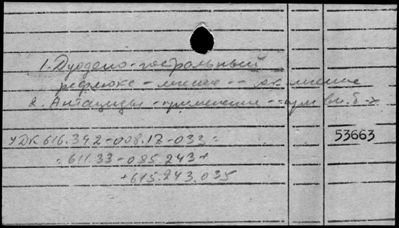 1. Дуодено-гастральный
рефлюкс - лечение --
2. Антациды - применение --
УДК 616.342-008.17-033:
53663
:611.33-085.243+
+615.243.035